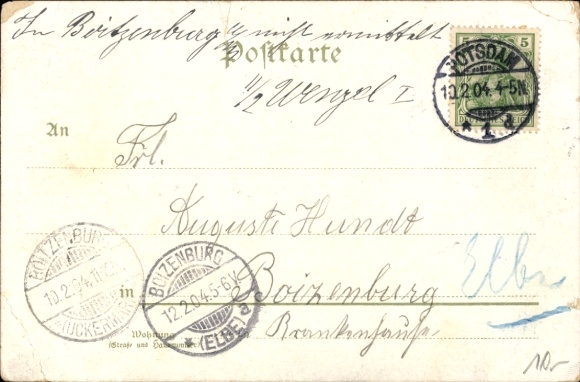 In Boitzenburg nicht ermittelt
Postkarte
5 5
POTSDAM
10.2.04.4-5N.
* 1 d
1/2 Wenzel I
An
Frl.
Auguste Hundt
BOITZENBURG
10.2.04.
(UCKERM.)
BOIZENBURG
12.2.04.5-6V.
* (ELBE) a
in Boizenburg Elbe
Wohnung Krankenhause
(Straße und Hausnummer)
10.-